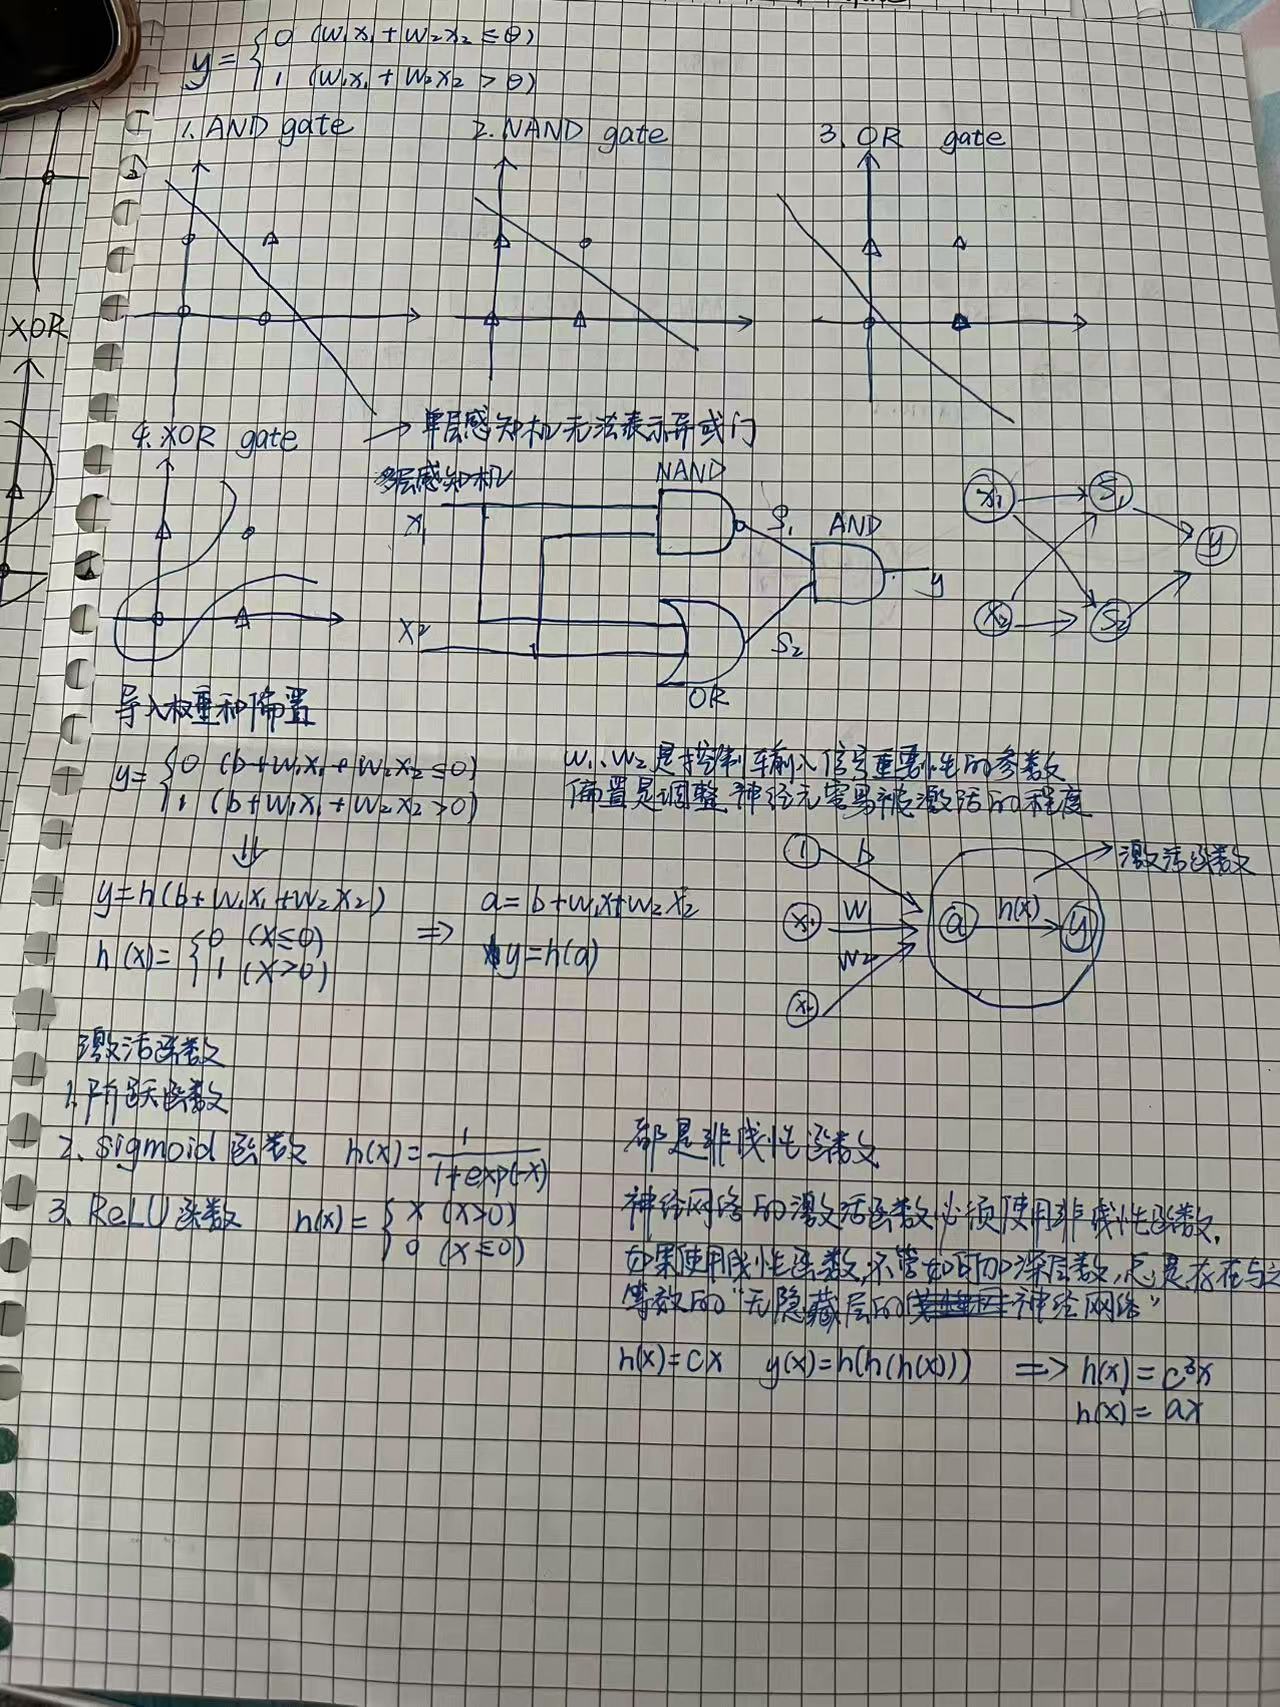 y = { 0 (w₁x₁ + w₂x₂ ≤ θ)
1 (w₁x₁ + w₂x₂ > θ)
1. AND gate
2. NAND gate
3. OR gate
XOR
4. XOR gate → 单层感知机无法表示异或门
多层感知机
NAND
x₁
S₁
AND
y
x₂
S₂
OR
x₁ S₁
y
x₂ S₂
导入权重和偏置
y = { 0 (b+w₁x₁+w₂x₂≤0)
1 (b+w₁x₁+w₂x₂>0)
w₁、w₂是控制输入信号重要性的参数
偏置是调整神经元容易被激活的程度
⇓
y=h(b+w₁x₁+w₂x₂)
h(x)= { 0 (x≤0)
1 (x>0)
⇒
a=b+w₁x+w₂x₂
y=h(a)
1 b
x₁ w₁
w₂
x₂
a h(x) y
激活函数
激活函数
1. 阶跃函数
2. sigmoid函数 h(x)=1/(1+exp(-x))
3. ReLU函数 h(x)= { x (x>0)
0 (x≤0)
都是非线性函数
神经网络的激活函数必须使用非线性函数.
如果使用线性函数,不管如何加深层数,总是存在与之
等效的“无隐藏层的神经网络”
h(x)=cx y(x)=h(h(h(x))) ⇒ h(x)=c³x
h(x)=ax